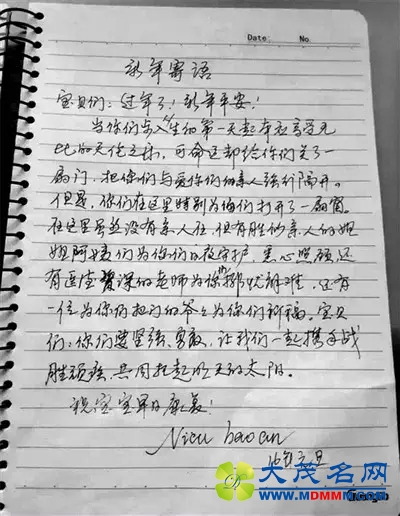 Date: No
新年寄语
宝贝们：过年了！新年平安！
当你们步入人生的第一天起本应享受无
比的天伦之乐，可命运却给你们关了一
扇门，把你们与爱你们的亲人强行隔开。
但是，你们在这里特别为你们打开了一扇窗。
在这里虽然没有亲人在，但有胜似亲人的姐
姐阿姨们为你们日夜守护，悉心照顾，还
有医德资深的老师为你们排忧解难，还有
一位为你们把门的爷爷为你们祈福。宝贝
们：你们要坚强、勇敢，让我们一起携手战
胜顽疾，共同托起明天的太阳。
祝宝宝早日康复！
Nicu baoan
16年元旦
大茂名网
WWW.MDMMM.COM